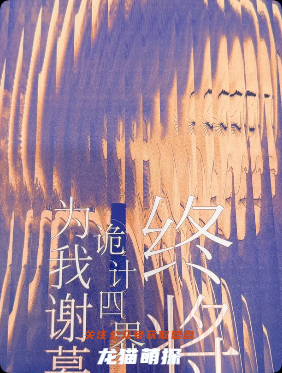 终将
为我谢幕
诡计四界
龙猫萌报